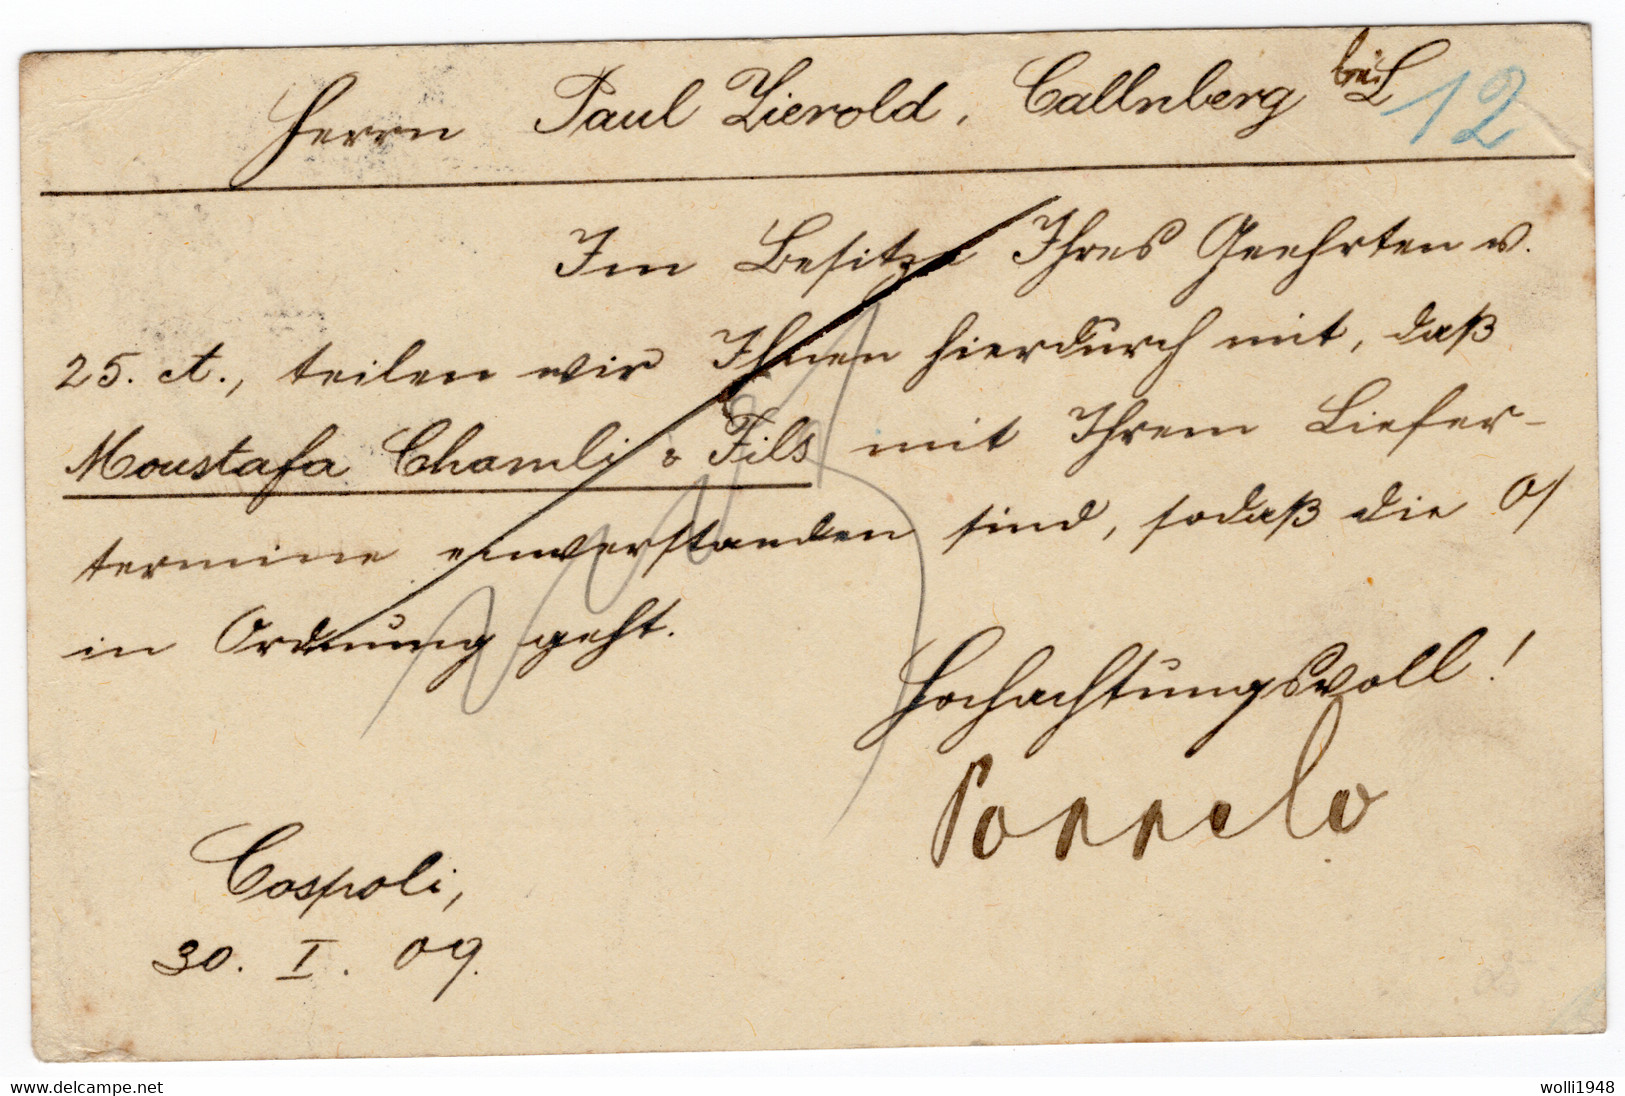 Herrn Paul Zierold, Callnberg bei L 12
Im Besitze Ihres Geehrten v.
25. ct., teilen wir Ihnen hierdurch mit, daß
Moustafa Chamli & Fils mit Ihrem Liefer-
termine einverstanden sind, sodaß die O/
in Ordnung geht.
Hochachtungsvoll!
Cospoli,
30. I. 09.
delcampe.net
wolli1948